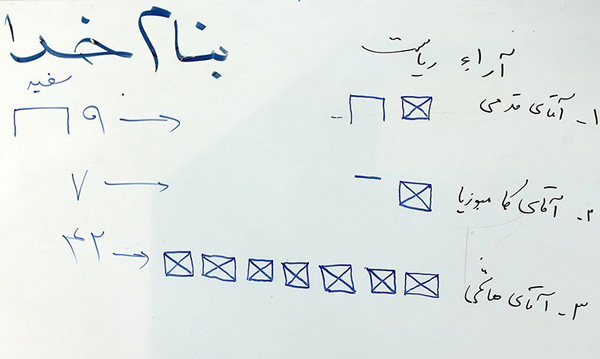 بنام خدا
آراء ریاست
سفید
۱- آقای قدمی ۹
۲- آقای کامبوزیا ۷
۳- آقای هاشمی ۴۲